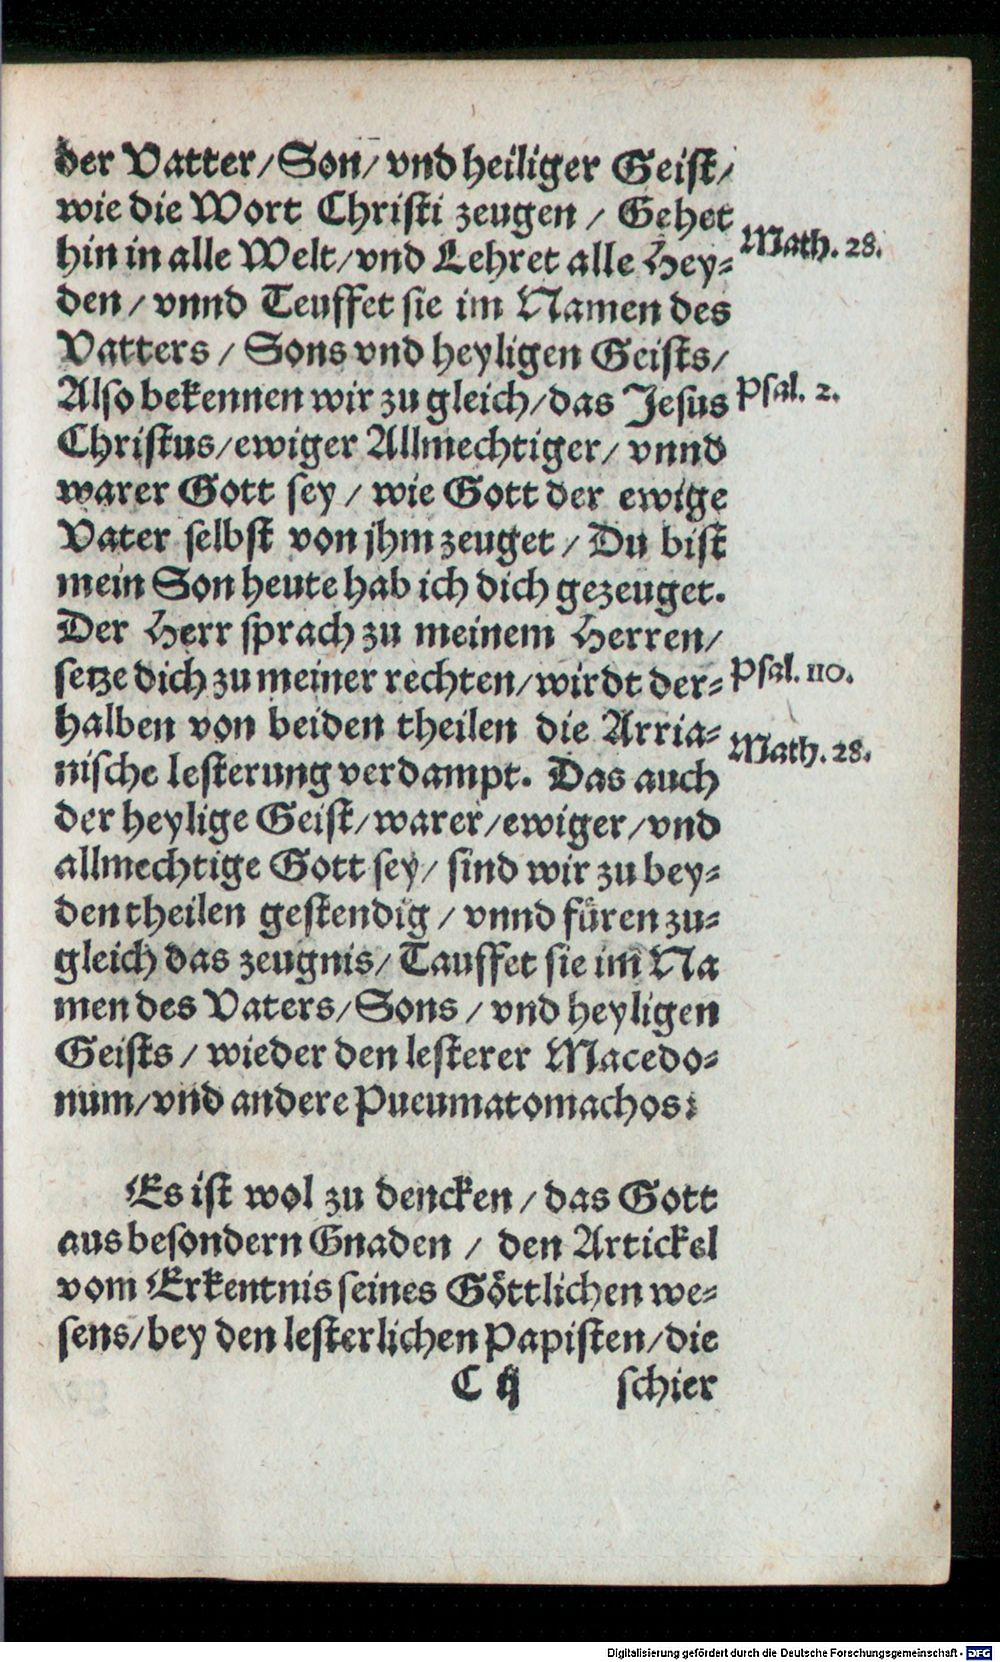 der Vatter/Son/vnd heiliger Geist/
wie die Wort Christi zeugen / Gehet
Math. 28.
hin in alle Welt/vnd Lehret alle Hey-
den / vnnd Teuffet sie im Namen des
Vatters / Sons vnd heyligen Geists/
Also bekennen wir zu gleich/das Jesus
Psal. 2.
Christus/ewiger Allmechtiger/ vnnd
warer Gott sey / wie Gott der ewige
Vater selbst von jhm zeuget / Du bist
mein Son heute hab ich dich gezeuget.
Der Herr sprach zu meinem Herren/
setze dich zu meiner rechten/wirdt der-
Psal. 110.
halben von beiden theilen die Arria-
Math. 28.
nische lesterung verdampt. Das auch
der heylige Geist/warer/ewiger/vnd
allmechtige Gott sey/ sind wir zu bey-
den theilen gestendig / vnnd füren zu-
gleich das zeugnis/ Tauffet sie im Na
men des Vaters/Sons / vnd heyligen
Geists / wieder den lesterer Macedo-
num/vnd andere Pueumatomachos:
Es ist wol zu dencken / das Gott
aus besondern Gnaden / den Artickel
vom Erkentnis seines Göttlichen we-
sens/bey den lesterlichen Papisten/die
C ij schier
Digitalisierung gefördert durch die Deutsche Forschungsgemeinschaft - DFG